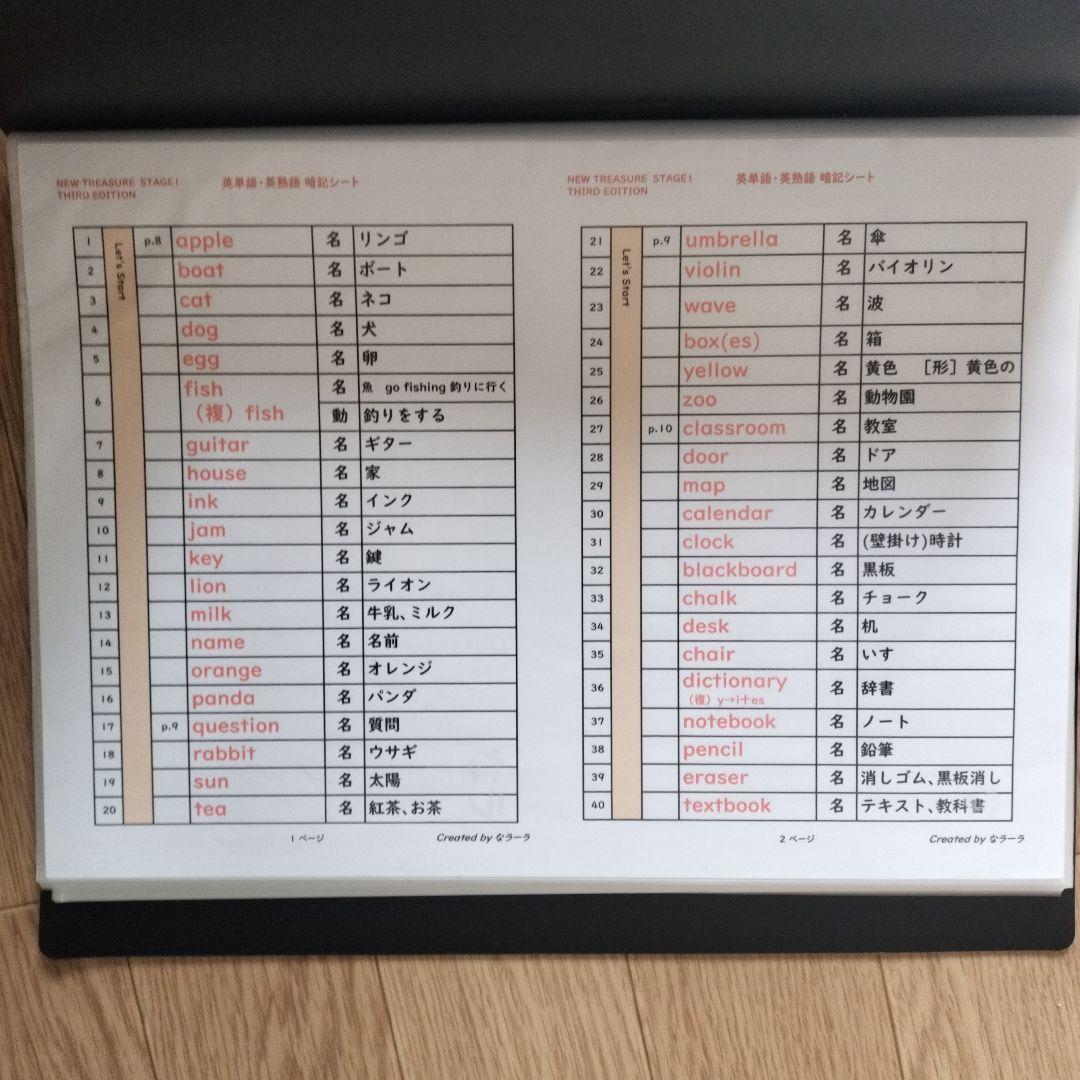 NEW TREASURE STAGE1 英単語・英熟語 暗記シート
THIRD EDITION
Let's Start
1 p.8 apple 名 リンゴ
2 boat 名 ボート
3 cat 名 ネコ
4 dog 名 犬
5 egg 名 卵
6 fish 名 魚 go fishing 釣りに行く
（複）fish 動 釣りをする
7 guitar 名 ギター
8 house 名 家
9 ink 名 インク
10 jam 名 ジャム
11 key 名 鍵
12 lion 名 ライオン
13 milk 名 牛乳、ミルク
14 name 名 名前
15 orange 名 オレンジ
16 panda 名 パンダ
17 p.9 question 名 質問
18 rabbit 名 ウサギ
19 sun 名 太陽
20 tea 名 紅茶、お茶
1 ページ Created by なラーラ
NEW TREASURE STAGE1 英単語・英熟語 暗記シート
THIRD EDITION
Let's Start
21 p.9 umbrella 名 傘
22 violin 名 バイオリン
23 wave 名 波
24 box(es) 名 箱
25 yellow 名 黄色 ［形］黄色の
26 zoo 名 動物園
27 p.10 classroom 名 教室
28 door 名 ドア
29 map 名 地図
30 calendar 名 カレンダー
31 clock 名 (壁掛け)時計
32 blackboard 名 黒板
33 chalk 名 チョーク
34 desk 名 机
35 chair 名 いす
36 dictionary 名 辞書
（複）y→i+es
37 notebook 名 ノート
38 pencil 名 鉛筆
39 eraser 名 消しゴム、黒板消し
40 textbook 名 テキスト、教科書
2 ページ Created by なラーラ